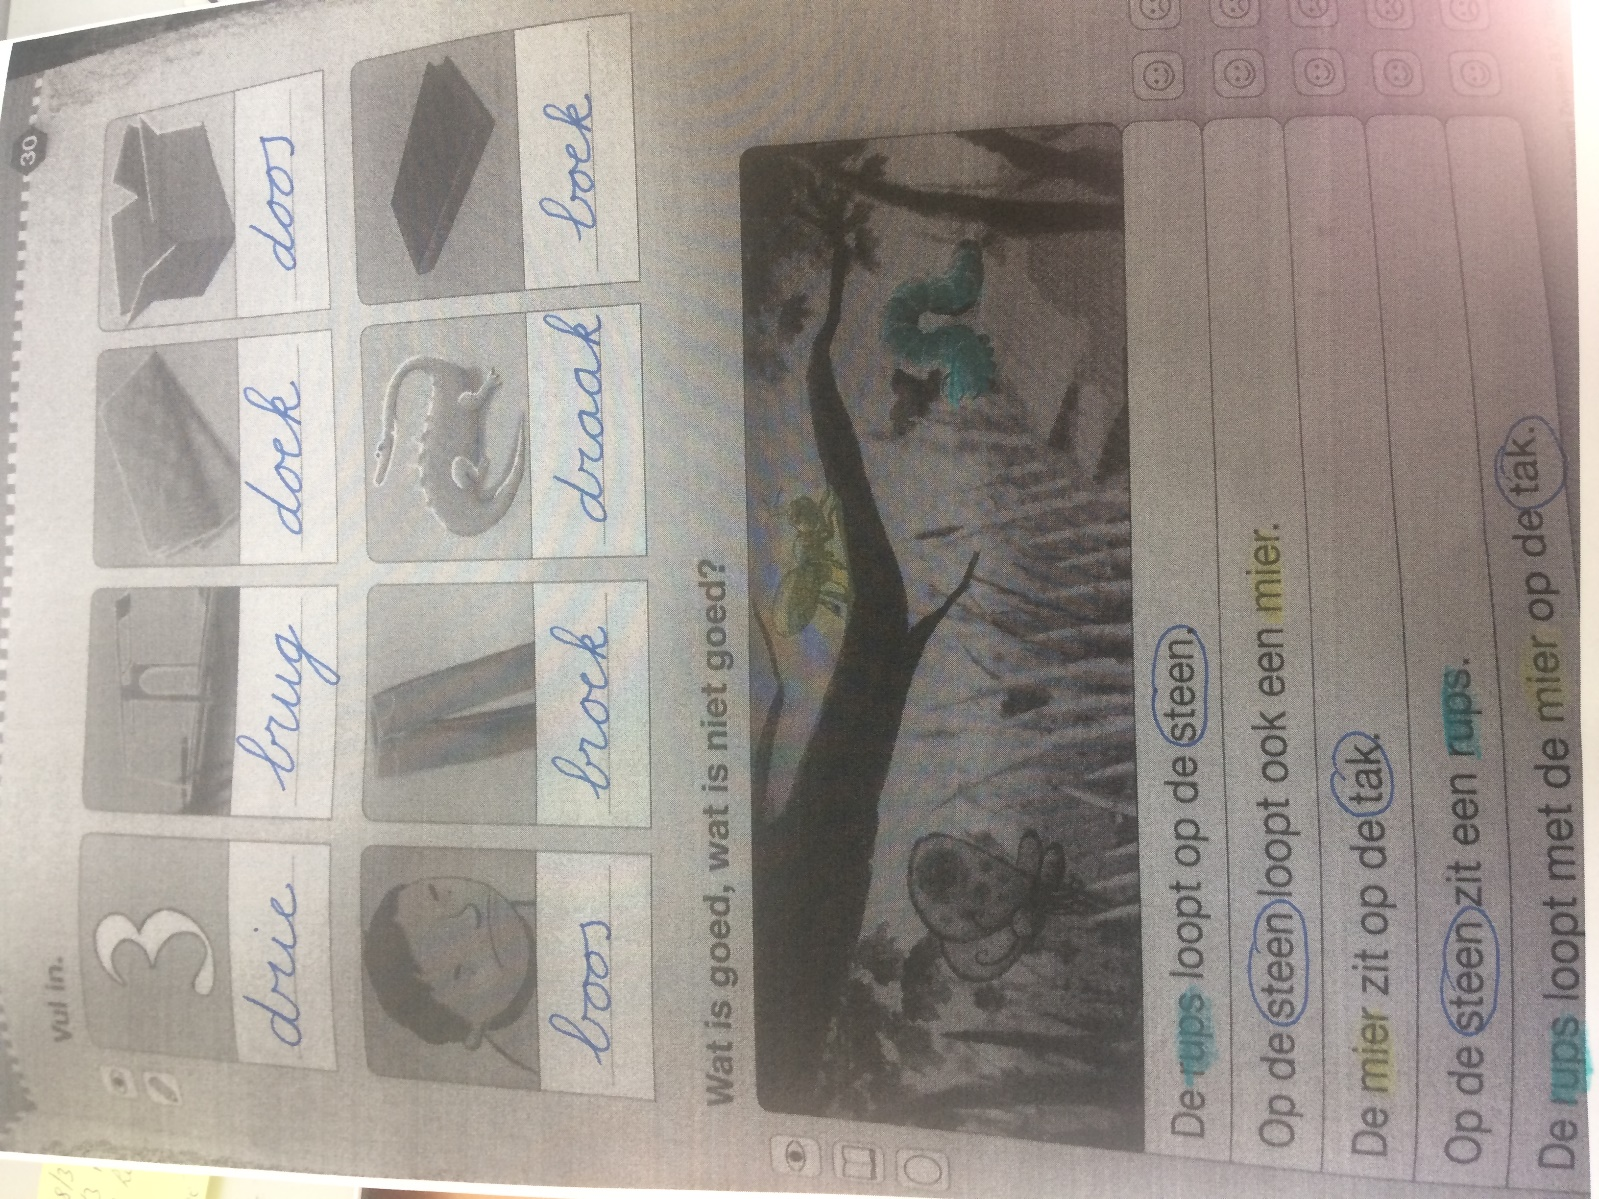 30
Vul in.
3
drie
brug
doek
doos
boos
broek
draak
boek
Wat is goed, wat is niet goed?
De rups loopt op de steen.
Op de steen loopt ook een mier.
De mier zit op de tak.
Op de steen zit een rups.
De rups loopt met de mier op de tak.